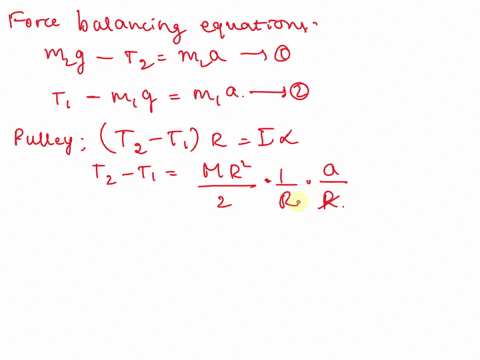 Force balancing equations.
m₂g − T₂ = m₂a → ①
T₁ − m₁g = m₁a. → ②
Pulley; (T₂ − T₁) R = Iα
T₂ − T₁ = MR²/2 · 1/R · a/R.